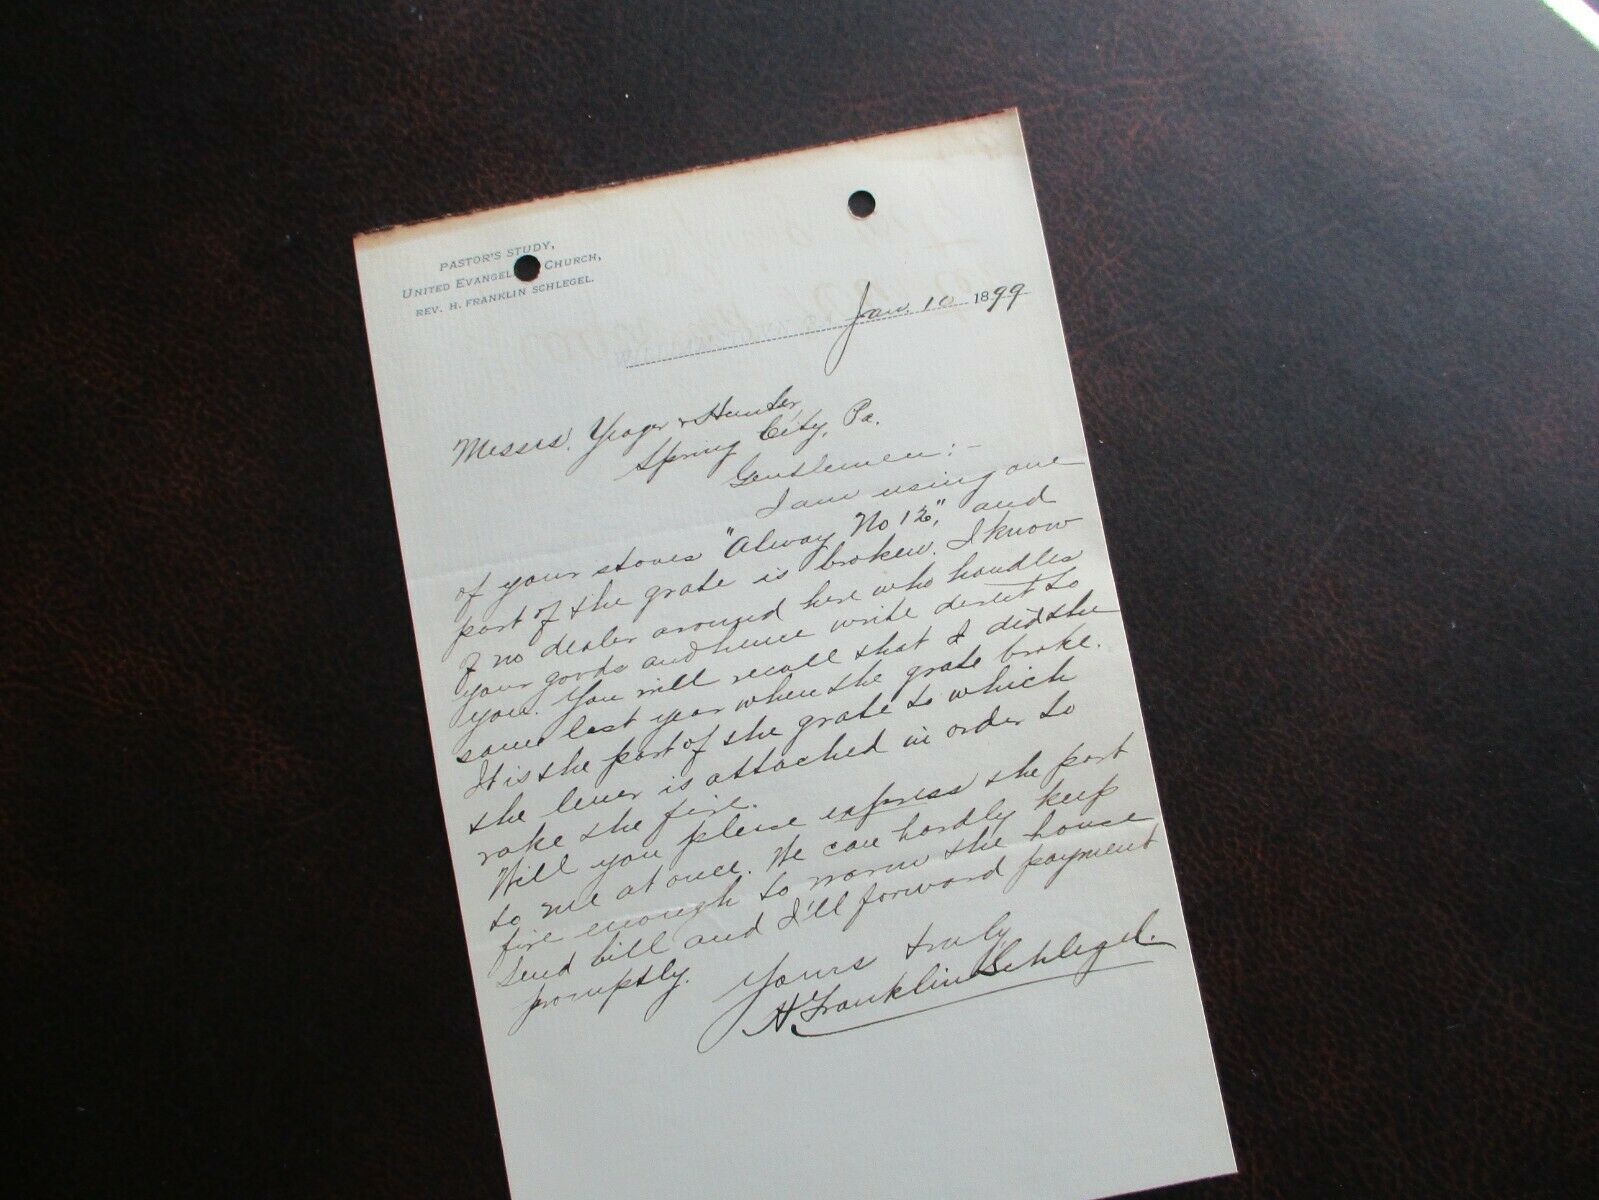 PASTOR'S STUDY,
UNITED EVANGEL CHURCH,
REV. H. FRANKLIN SCHLEGEL.
Jan. 10 1899
Messrs. Yeager & Hunter
Spring City, Pa.
Gentlemen:-
I am using one
of your stoves "Alway No 12", and
part of the grate is broken. I know
of no dealer around here who handles
your goods and hence write direct to
you. You will recall that I did the
same last year when the grate broke.
It is the part of the grate to which
the lever is attached in order to
rake the fire.
Will you please express the part
to me at once. We can hardly keep
fire enough to warm the house
Send bill and I'll forward payment
promptly.
Yours truly,
H Franklin Schlegel.